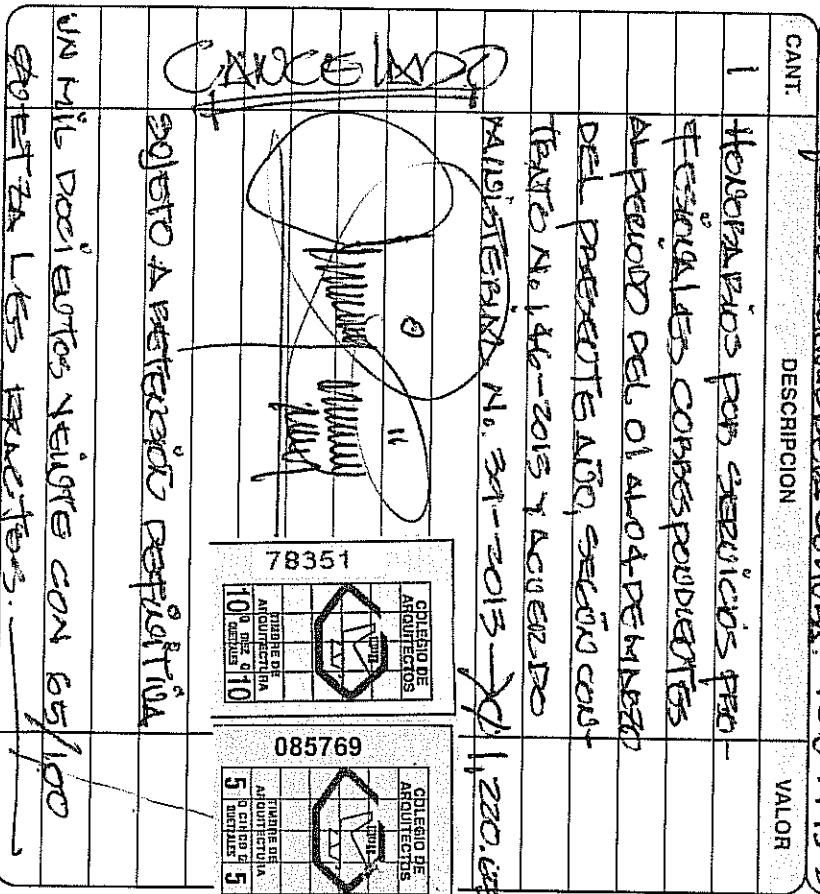 CANT. DESCRIPCION VALOR
1 HONORARIOS POR SERVICIOS PRO-
FESIONALES CORRESPONDIENTES
AL PERIODO DEL 01 AL 04 DE MARZO
DEL PRESENTE AÑO, SEGÚN CON-
TRATO No. 146-2013 Y ACUERDO
MINISTERIAL No. 31-2013 1,220.65
CANCELADO
SUJETO A RETENCIÓN DEFINITIVA
UN MIL DOCIENTOS VEINTE CON 65/100
QUETZALES EXACTOS.
78351
COLEGIO DE
ARQUITECTOS
TIMBRE DE
ARQUITECTURA
10 Q DIEZ Q 10
QUETZALES
085769
COLEGIO DE
ARQUITECTOS
TIMBRE DE
ARQUITECTURA
5 Q CINCO Q 5
QUETZALES